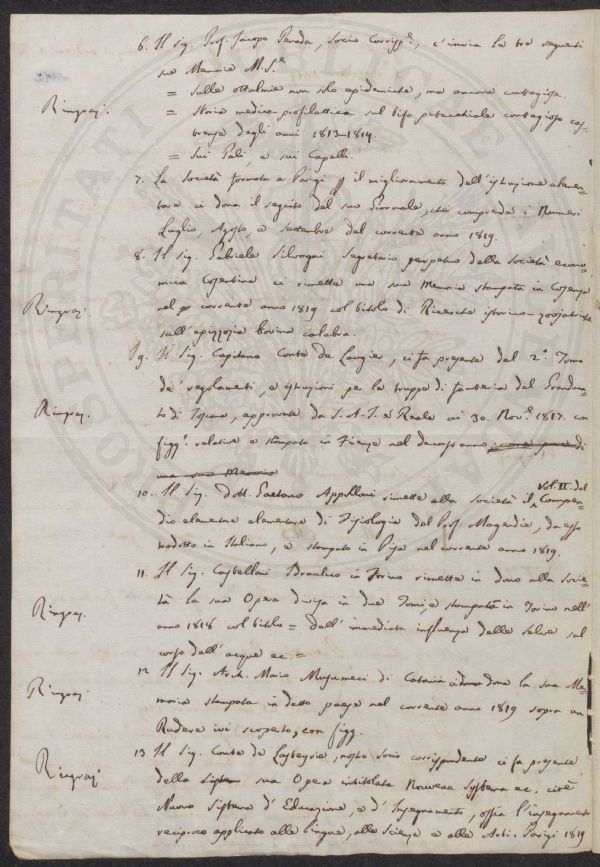 6. Il sig. Prof. Jacopo Penada, Socio Corrisp.e, c'invia le tre seguenti
sue Memorie M.S.e
= Sulla ottalmia non solo epidemica, ma ancora contagiosa
Ringrazi. = Storia medico-profilattica sul tifo petecchiale contagioso cas-
trense degli anni 1813-1814.
= Sui Peli, e sui Capelli.
7. La Società formata a Parigi p il miglioramento dell'istruzione elemen-
tare ci dona il seguito del suo Giornale, che comprende i Numeri
Luglio, Agosto, e Settembre del corrente anno 1819.
8. Il sig. Gabriele Silvagni Segretario perpetuo della Società econo-
mica Cosentina ci rimette una sua Memoria stampata in Cosenza
Ringrazi. nel corrente anno 1819 col titolo di Ricerche istorico-zoojatriche
sull'epizozia bovina calabra.
9. Il Sig. Capitano Conte De Laugier, ci fa presente del 2.o Tomo
de' regolamenti, e istruzioni per la truppa di fanteria del Grandu-
Ringraz. to di Toscana, approvate da S. A. I. e Reale ai 30. Nov.e 1817. con
figg.e relative e stampato in Firenze nel decorso anno, come pure di
una sua Memoria
10. Il Sig. Dott. Gaetano Appolloni rimette alla Società il Vol. II. del Compen-
dio elementare elementare di Fisiologia del Prof. Magendie, da esso
tradotto in Italiano, e stampato in Pisa nel corrente anno 1819.
11. Il Sig. Castellani Braulico in Torino rimette in dono alla Socie-
Ringraz. tà la sua Opera divisa in due Tomi, e stampata in Torino nell'
anno 1818 col titolo = dell'immediata influenza delle Selve sul
corso dell'acque ec. =
12 Il Sig. Arch. Mario Musumeci di Catania ci dona la sua Me-
Ringraz. moria stampata in detto paese nel corrente anno 1819 sopra un
Rudere ivi scoperto, con figg.
13. Il Sig. Conte de Lasteyrie, nostro socio corrispondente ci fa presente
Ringrazi della sua Opera intitolata Nouveau Systeme ec. cioè
Nuovo Sistema d'Educazione, e d'Insegnamento, ossia l'insegnamento
reciproco applicato alle Lingue, alle Scienze e alle Arti. Parigi 1819